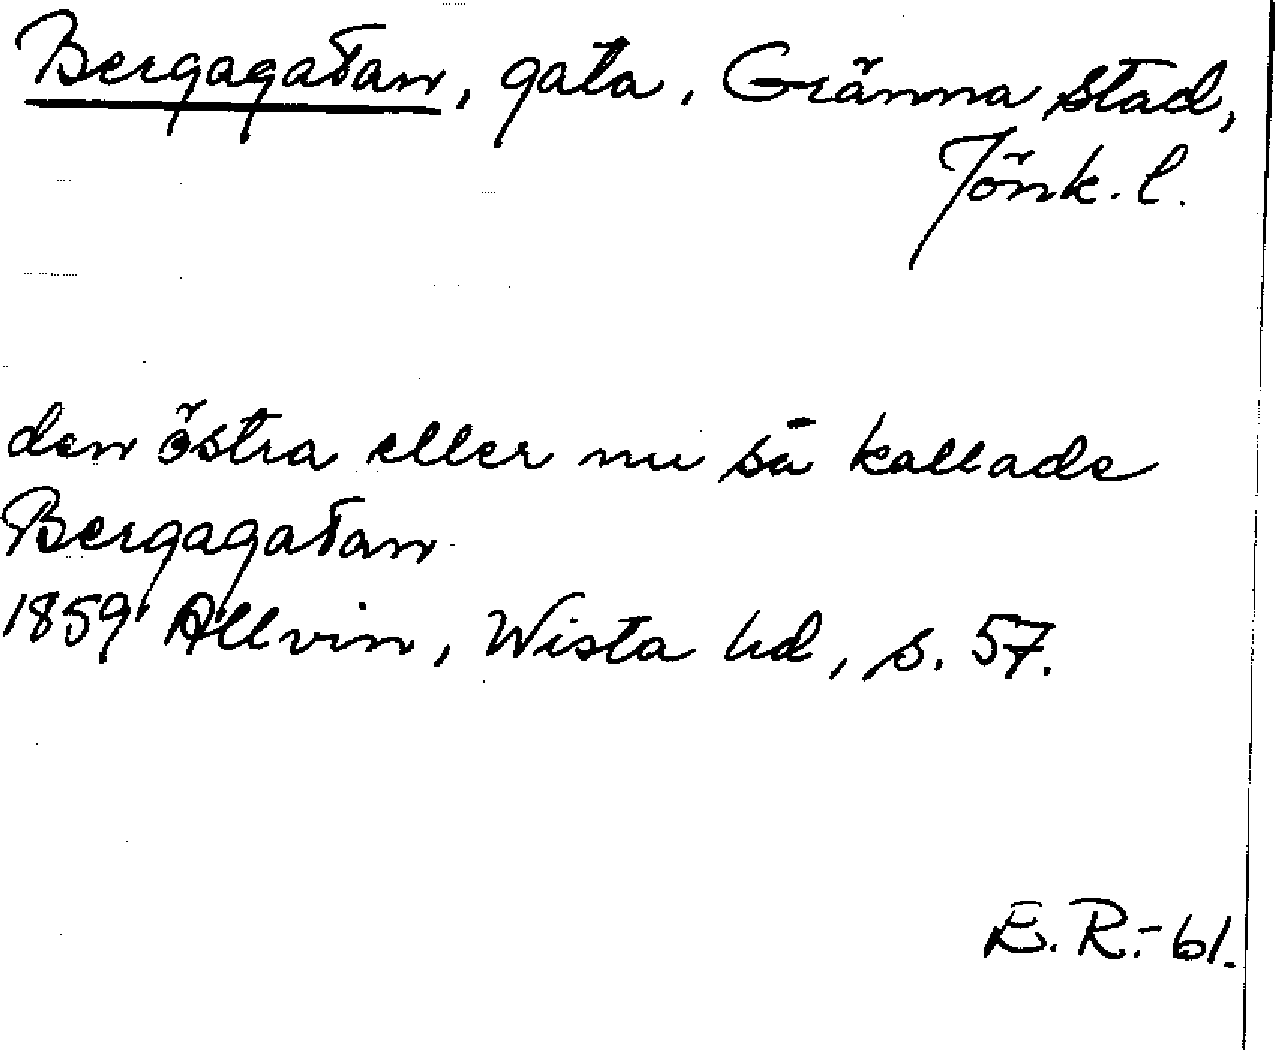 Bergagatan, gata, Gränna stad,
Jönk. l.
den östra eller nu så kallade
Bergagatan
1859 Allvin, Wista hd, s. 57.
E. R. - 61.